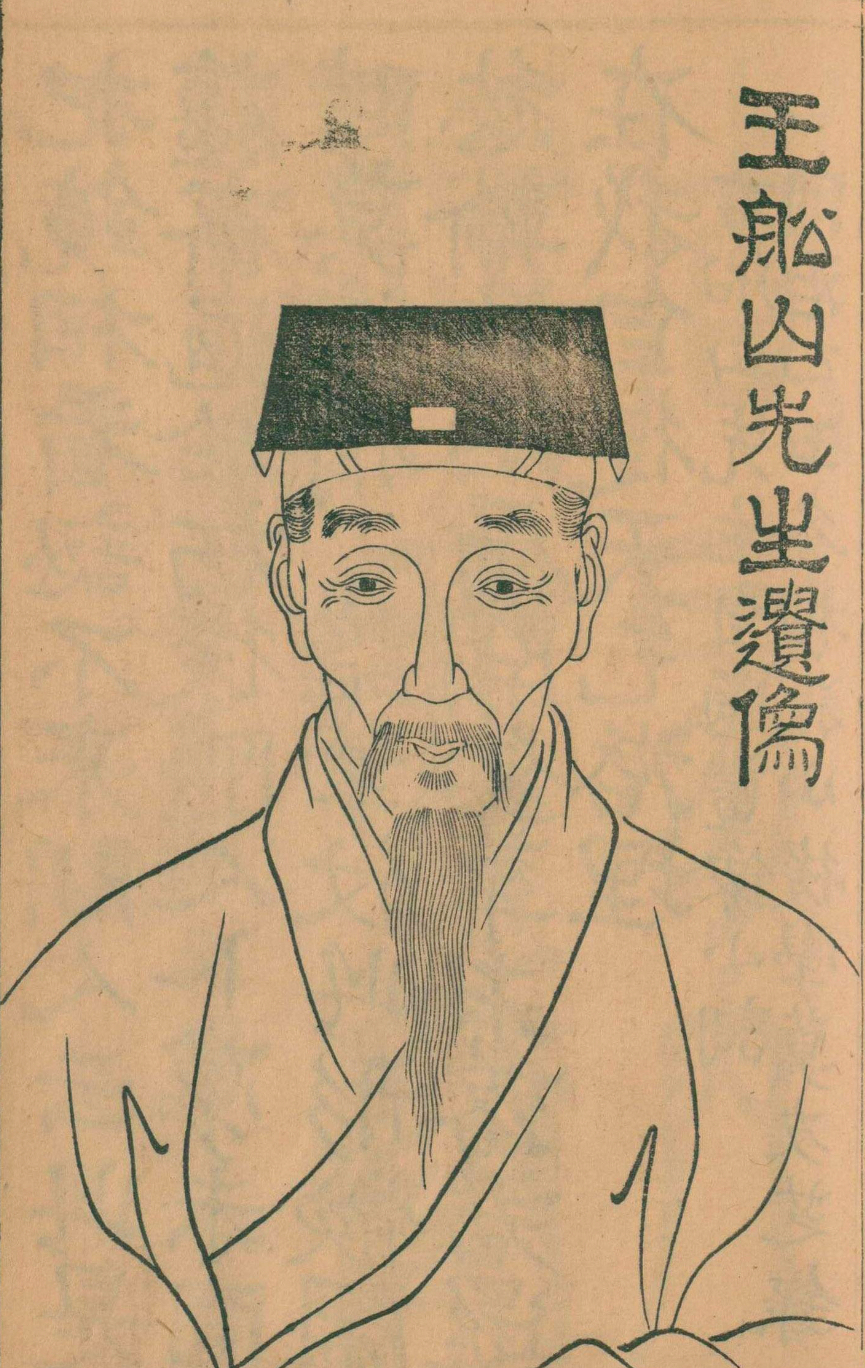 王船山先生遺像